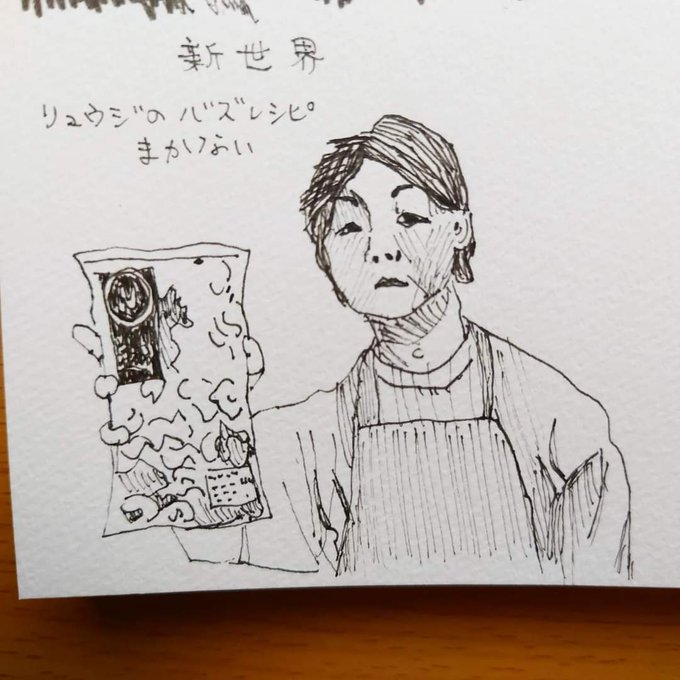 新世界
リュウジの バズレシピ
まかない